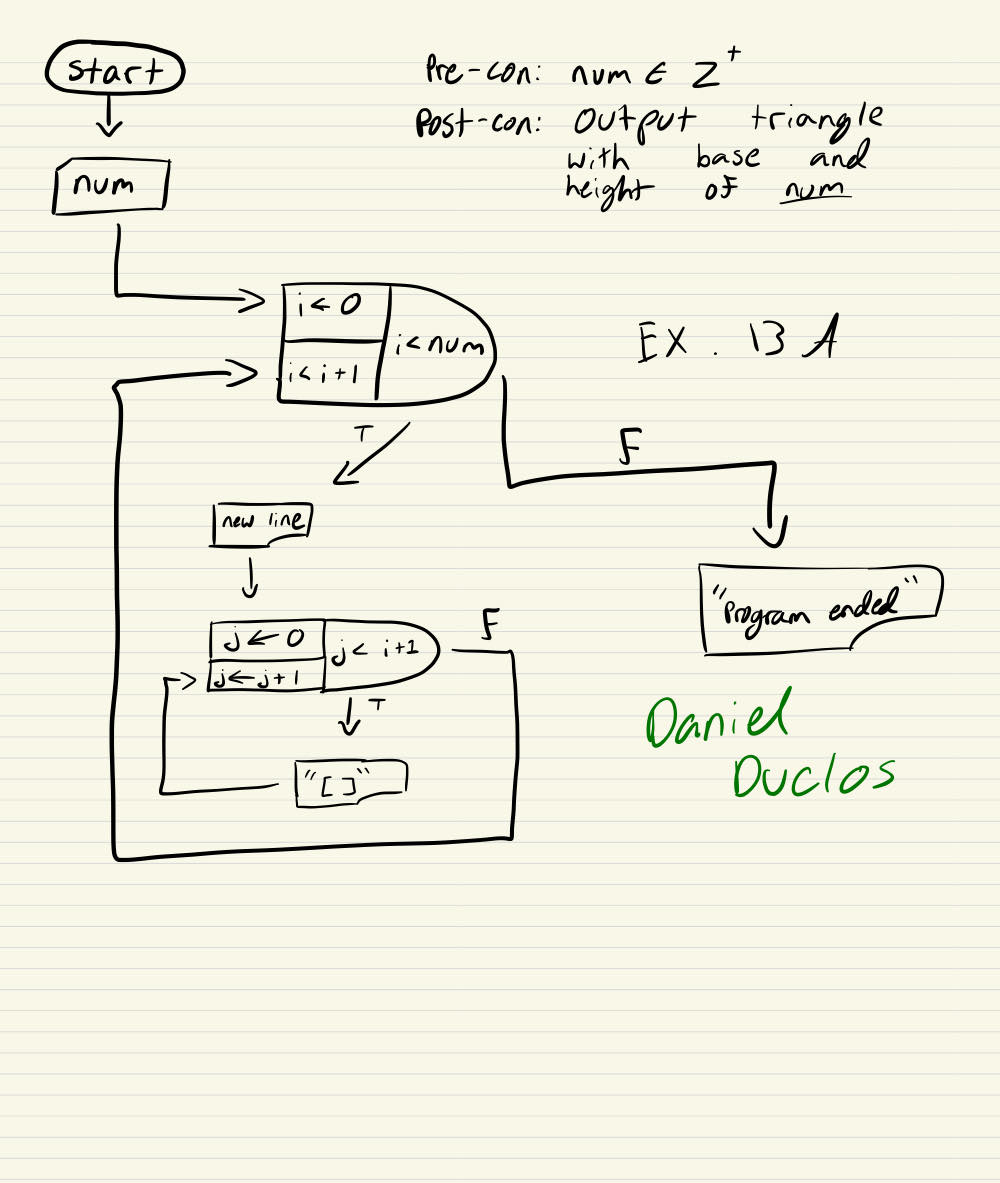 start
Pre-con: num ∈ Z⁺
Post-con: Output triangle
with base and
height of num
num
i ← 0
i < num
i < i+1
EX. 13 A
T
F
new line
"Program ended"
j ← 0
j < i+1
j ← j+1
F
T
"[ ]"
Daniel
Duclos